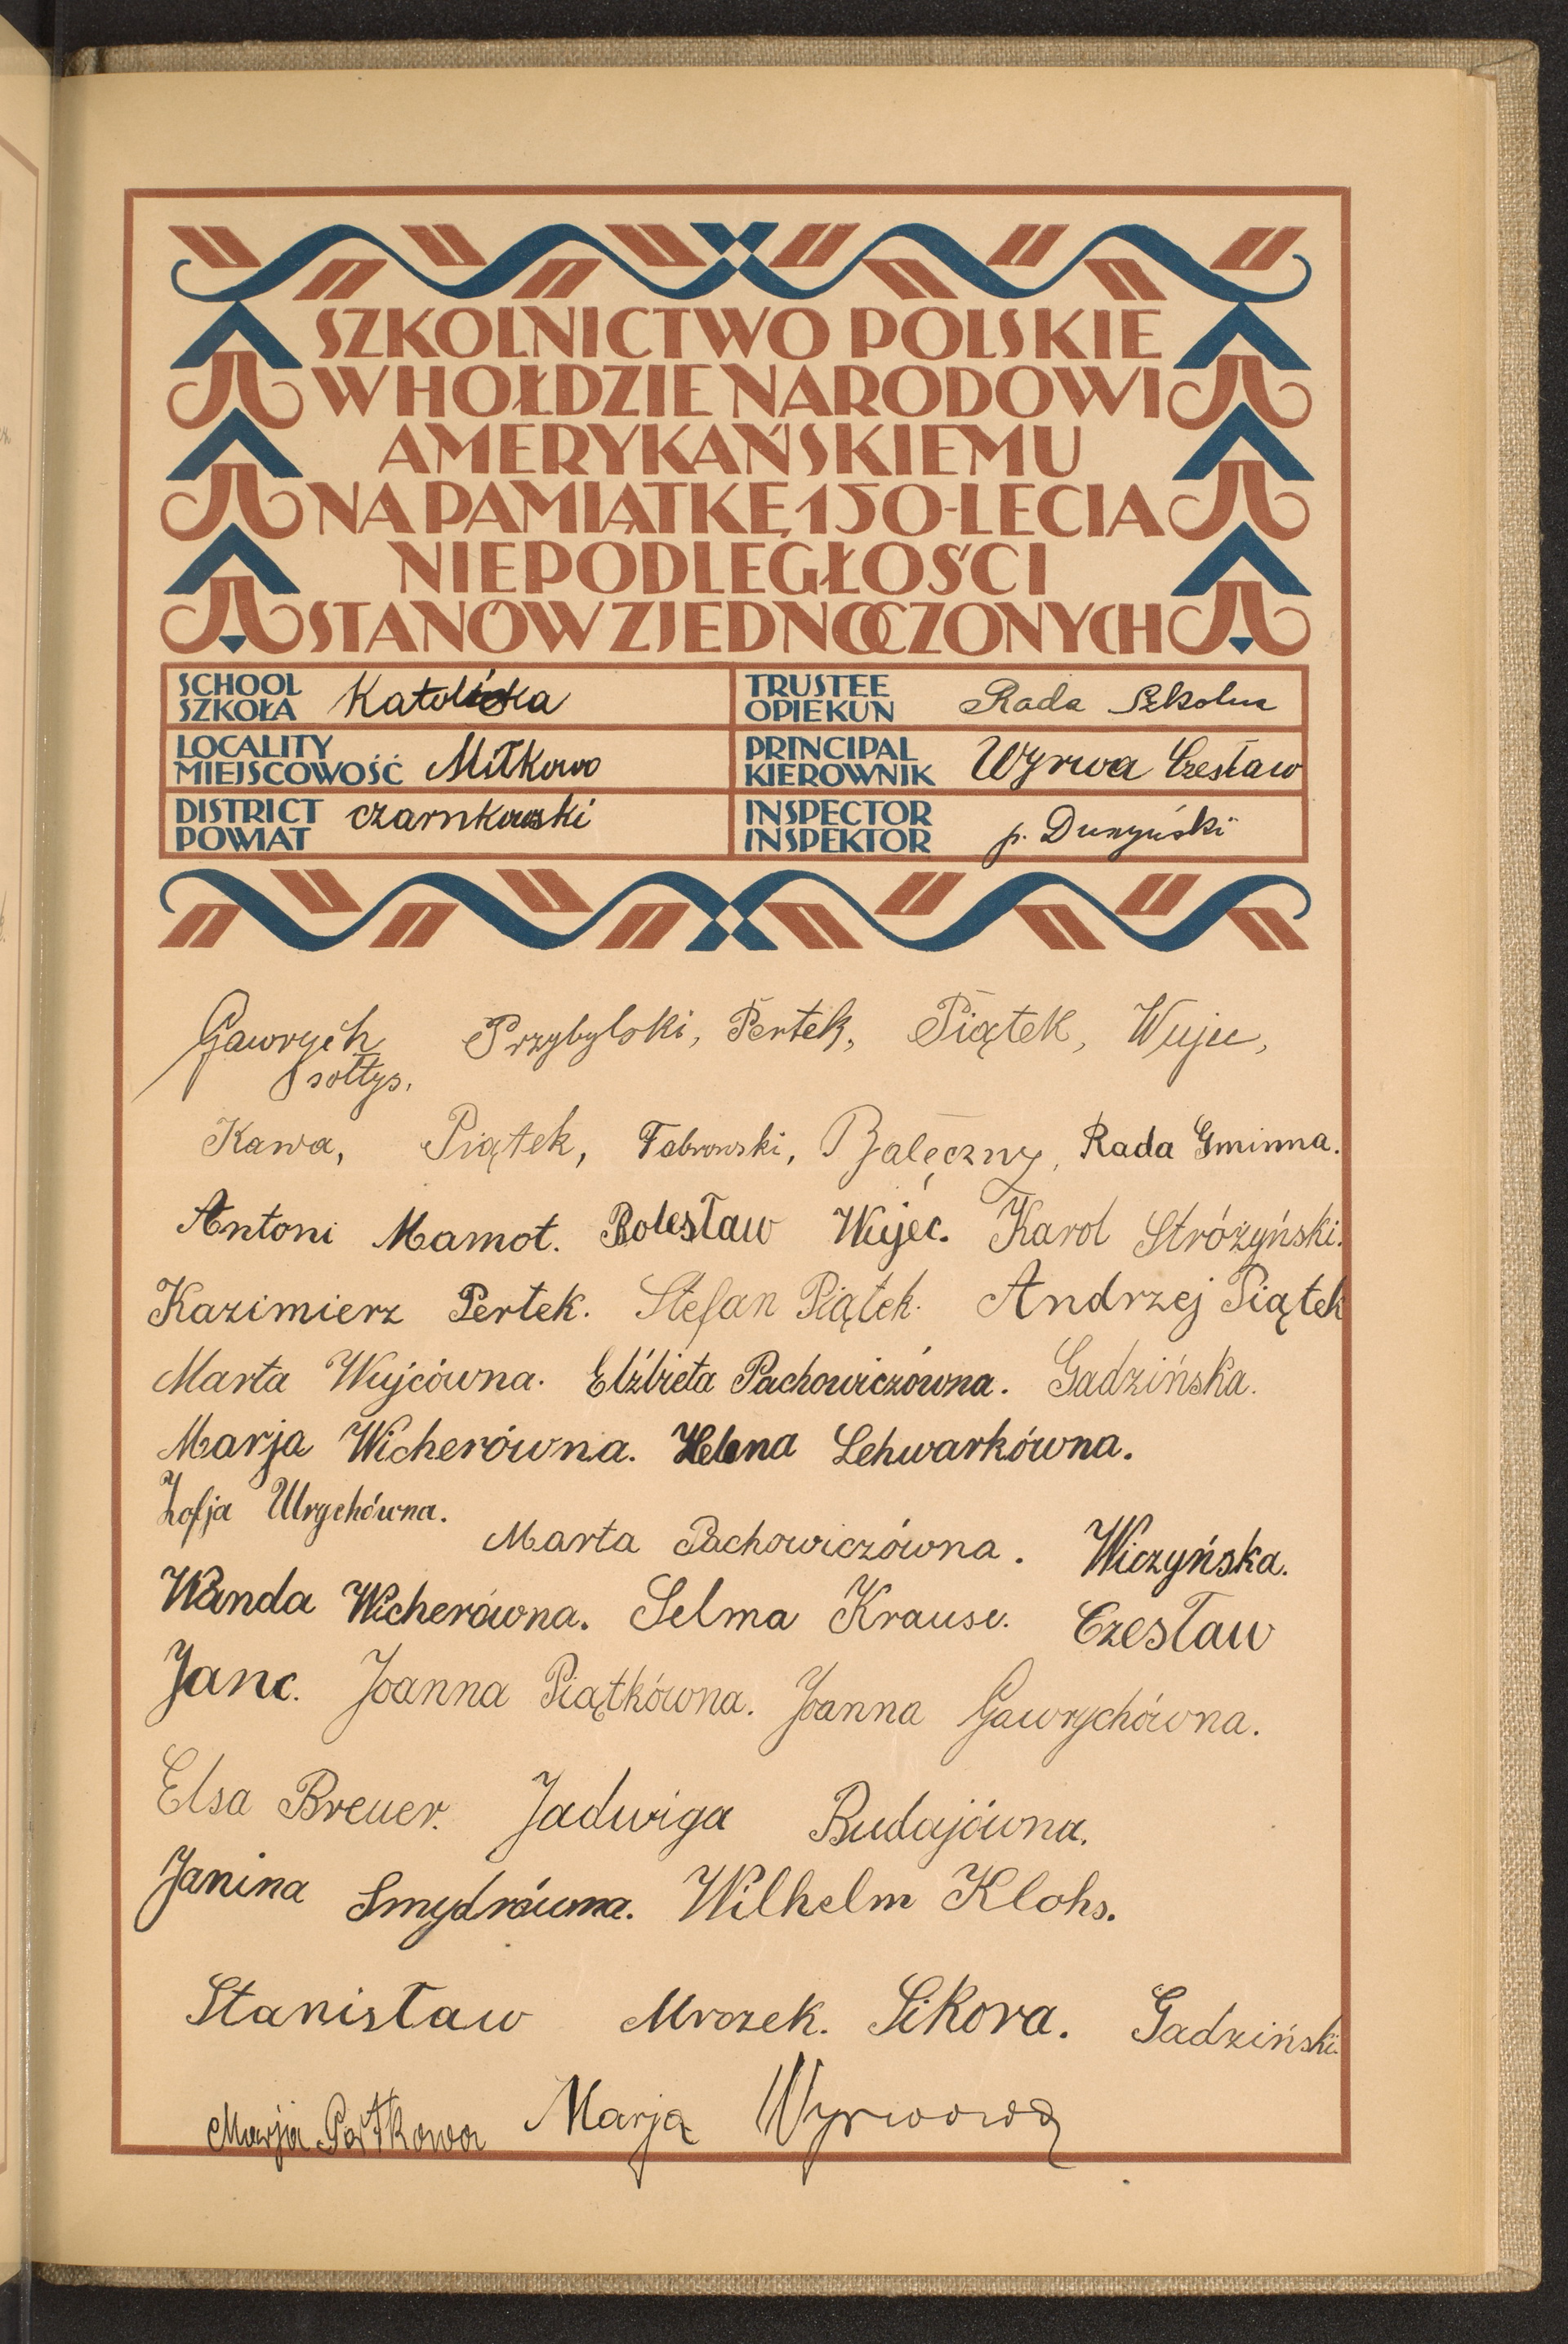 SZKOLNICTWO POLSKIE
W HOŁDZIE NARODOWI
AMERYKAŃSKIEMU
NA PAMIĄTKĘ 150-LECIA
NIEPODLEGŁOŚCI
STANÓW ZJEDNOCZONYCH
SCHOOL SZKOŁA Katolicka
TRUSTEE OPIEKUN Rada Szkolna
LOCALITY MIEJSCOWOŚĆ Miłkowo
PRINCIPAL KIEROWNIK Wyrwa Czesław
DISTRICT POWIAT czarnkowski
INSPECTOR INSPEKTOR p. Dunyński
Gawrych Przybylski, Pertek, Piątek, Wujec,
sołtys.
Kawa, Piątek, Fabrowski, Balęczny, Rada Gminna.
Antoni Mamot. Bolesław Wujec. Karol Stróżyński.
Kazimierz Pertek. Stefan Piątek. Andrzej Piątek
Marta Wujcówna. Elżbieta Pachowiczówna. Gadzińska.
Marja Wicherówna. Helena Lehwarkówna.
Zofja Urychówna. Marta Pachowiczówna. Wiczyńska.
Wanda Wicherówna. Selma Krause. Czesław
Janc. Joanna Piątkówna. Joanna Gawrychówna.
Elsa Breuer. Jadwiga Budajówna.
Janina Smydrówna. Wilhelm Klohs.
Stanisław Mrozek. Sikora. Gadziński.
Marja Marja Wyrwowa